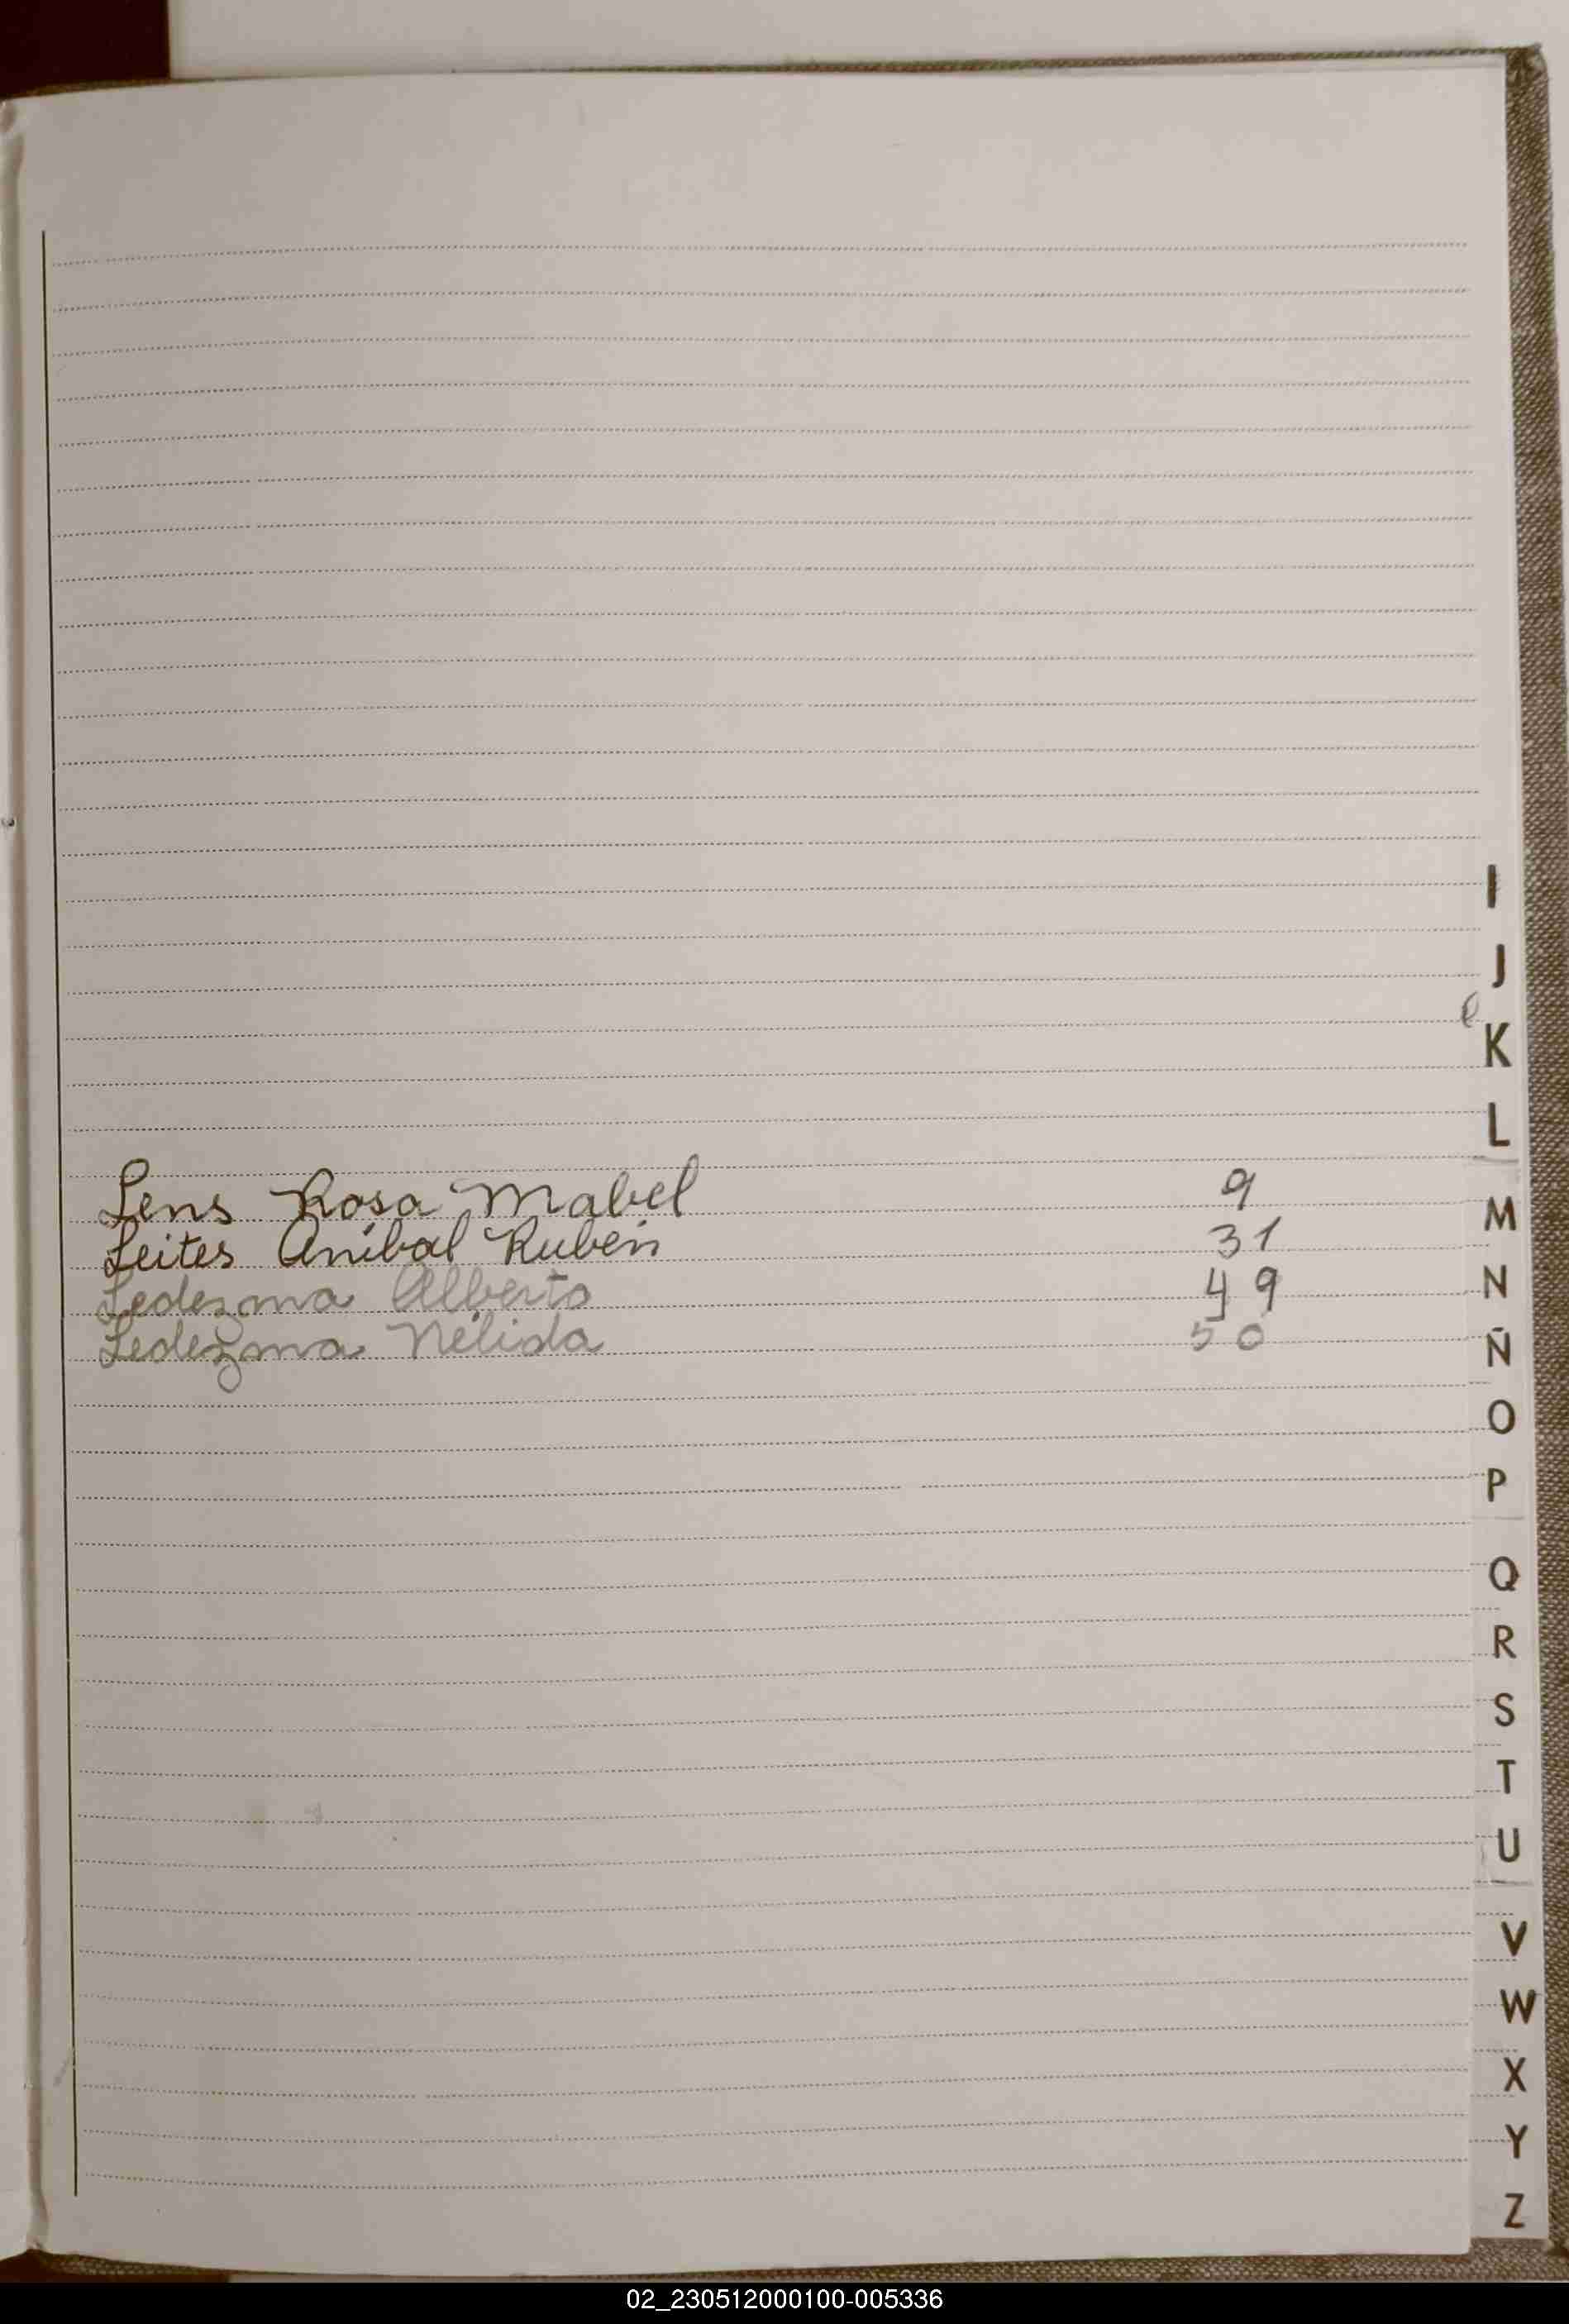 I
J
e
K
L
Lens Rosa Mabel 9
M
Leites Anibal Ruben 31
Ledezma Alberto 49
N
Ledezma Nélida 50
Ñ
O
P
Q
R
S
T
U
V
W
X
Y
Z
02_230512000100-005336